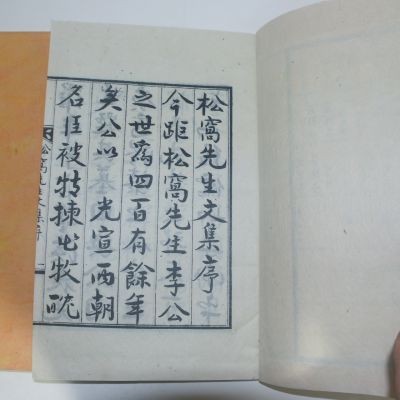 松窩先生文集序
今距松窩先生李公
之世爲四百有餘年
矣公以 光宣兩朝
名臣被特揀出牧
松窩先生文集序